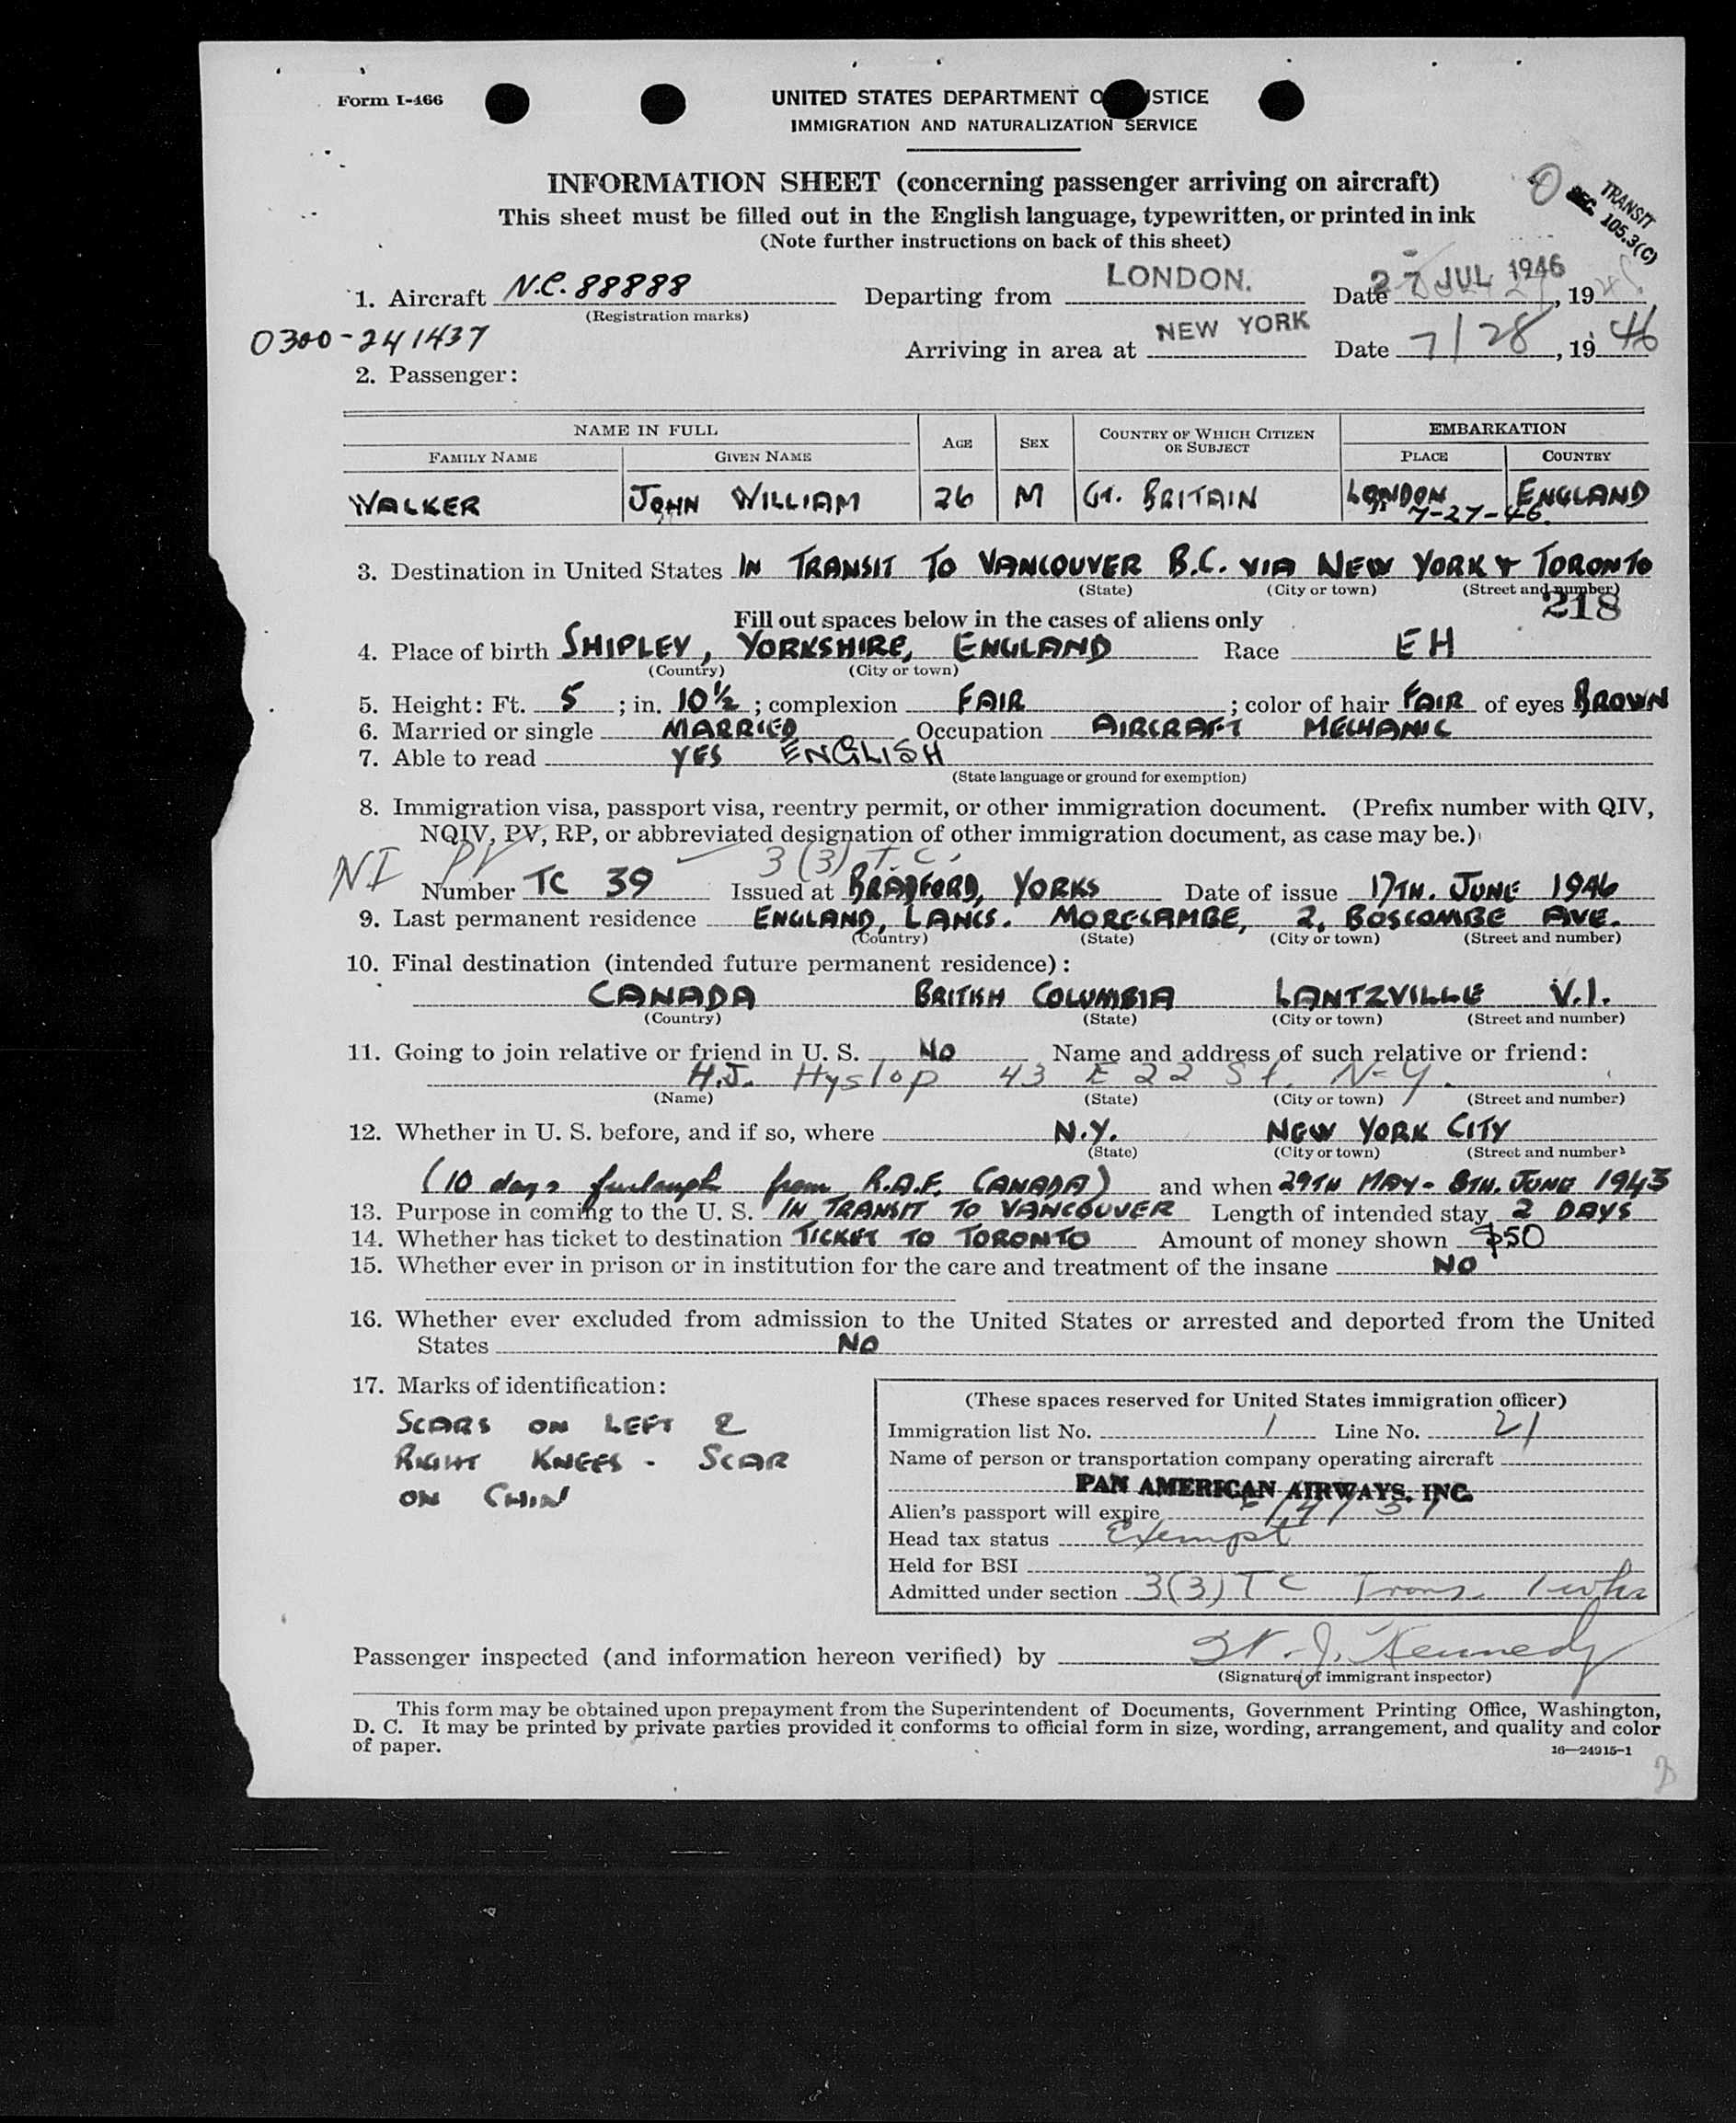 Form I-466
UNITED STATES DEPARTMENT O STICE
IMMIGRATION AND NATURALIZATION SERVICE
INFORMATION SHEET (concerning passenger arriving on aircraft)
This sheet must be filled out in the English language, typewritten, or printed in ink
(Note further instructions on back of this sheet)
TRANSIT
SEC. 105.3(C)
1. Aircraft N.C. 88888 Departing from LONDON. Date 27 JUL 1946, 19
(Registration marks)
0300-241437
Arriving in area at NEW YORK Date 7/28, 1946
2. Passenger:
NAME IN FULL AGE SEX COUNTRY OF WHICH CITIZEN OR SUBJECT EMBARKATION
FAMILY NAME GIVEN NAME PLACE COUNTRY
WALKER JOHN WILLIAM 26 M GT. BRITAIN LONDON ENGLAND
7-27-46.
3. Destination in United States IN TRANSIT TO VANCOUVER B.C. VIA NEW YORK & TORONTO
(State) (City or town) (Street and number)
218
Fill out spaces below in the cases of aliens only
4. Place of birth SHIPLEY, YORKSHIRE, ENGLAND Race EH
(Country) (City or town)
5. Height: Ft. 5; in. 10½; complexion FAIR; color of hair FAIR of eyes BROWN
6. Married or single MARRIED Occupation AIRCRAFT MECHANIC
7. Able to read YES ENGLISH
(State language or ground for exemption)
8. Immigration visa, passport visa, reentry permit, or other immigration document. (Prefix number with QIV,
NQIV, PV, RP, or abbreviated designation of other immigration document, as case may be.)
NI PV 3(3) T.C.
Number TC 39 Issued at BRADFORD, YORKS Date of issue 17TH. JUNE 1946
9. Last permanent residence ENGLAND, LANCS. MORECAMBE, 2, BOSCOMBE AVE.
(Country) (State) (City or town) (Street and number)
10. Final destination (intended future permanent residence):
CANADA BRITISH COLUMBIA LANTZVILLE V.I.
(Country) (State) (City or town) (Street and number)
11. Going to join relative or friend in U. S. NO Name and address of such relative or friend:
H.J. Hyslop 43 E 22 St. N-Y.
(Name) (State) (City or town) (Street and number)
12. Whether in U. S. before, and if so, where N.Y. NEW YORK CITY
(State) (City or town) (Street and number)
(10 days furlough from R.A.F. CANADA) and when 29TH MAY - 8TH. JUNE 1943
13. Purpose in coming to the U. S. IN TRANSIT TO VANCOUVER Length of intended stay 2 DAYS
14. Whether has ticket to destination TICKET TO TORONTO Amount of money shown $50
15. Whether ever in prison or in institution for the care and treatment of the insane NO
16. Whether ever excluded from admission to the United States or arrested and deported from the United
States NO
17. Marks of identification:
SCARS ON LEFT &
RIGHT KNEES - SCAR
ON CHIN
(These spaces reserved for United States immigration officer)
Immigration list No. 1 Line No. 21
Name of person or transportation company operating aircraft
PAN AMERICAN AIRWAYS, INC.
Alien's passport will expire
Head tax status Exempt
Held for BSI
Admitted under section 3(3) TC Trans.
Passenger inspected (and information hereon verified) by J. Kennedy
(Signature of immigrant inspector)
This form may be obtained upon prepayment from the Superintendent of Documents, Government Printing Office, Washington,
D. C. It may be printed by private parties provided it conforms to official form in size, wording, arrangement, and quality and color
of paper.
16—24915-1